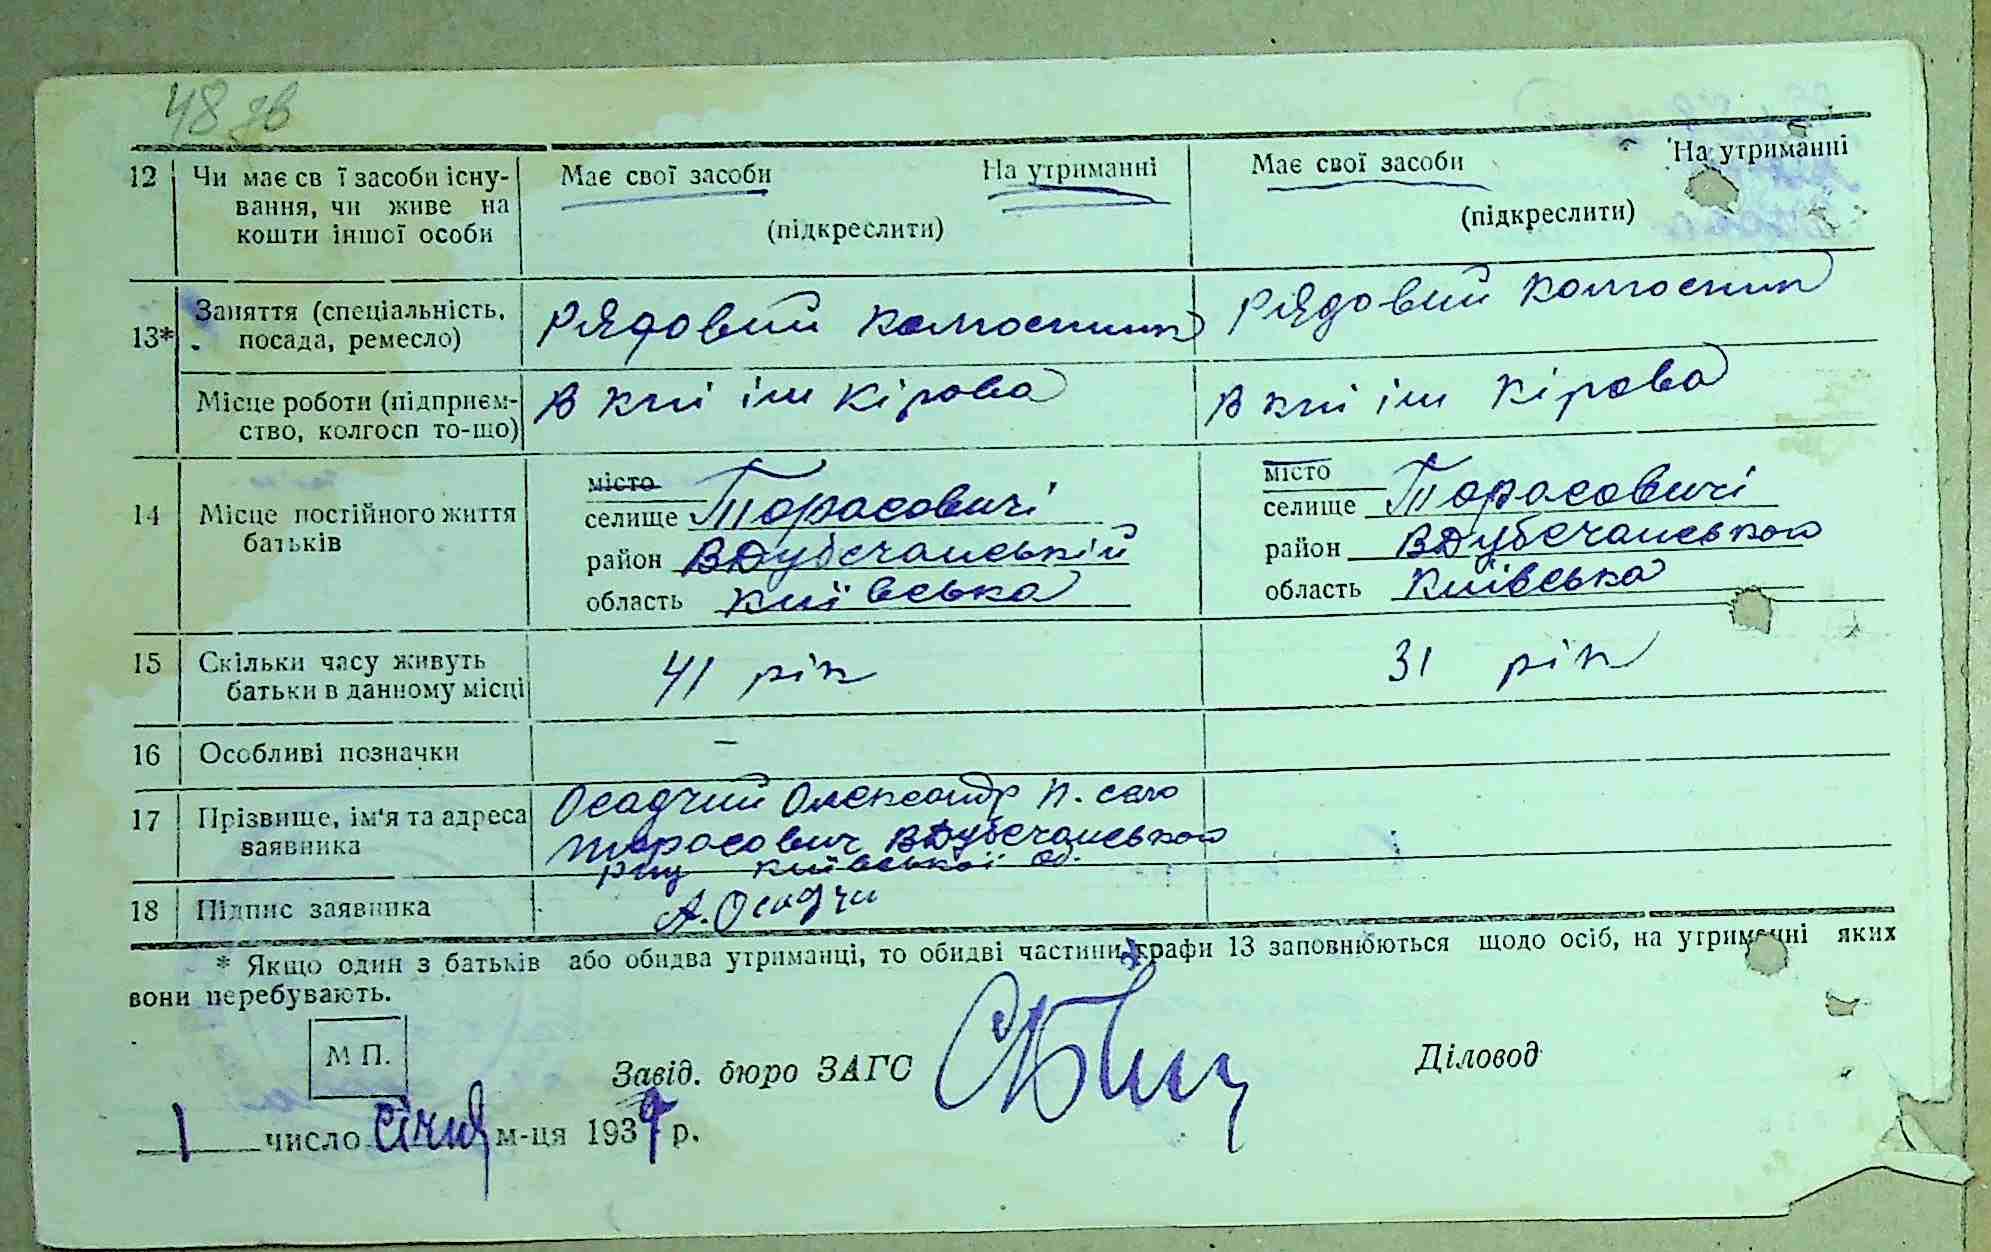 48 зв
12 Чи має св ї засоби існу- Має свої засоби На утриманні Має свої засоби На утриманні
вання, чи живе на
кошти іншої особи (підкреслити) (підкреслити)
13* Заняття (спеціальність, Рядовий колгоспник Рядовий колгоспник
посада, ремесло)
Місце роботи (підприєм- В к-пі ім Кірова В к-пі ім Кірова
ство, колгосп то-що)
14 Місце постійного життя місто місто
батьків селище Тарасовичі селище Тарасовичі
район ВДубечанський район ВДубечанського
область Київська область Київська
15 Скільки часу живуть 41 рік 31 рік
батьки в данному місці
16 Особливі позначки –
17 Прізвище, ім'я та адреса Осадчий Олександр П. село
заявника Тарасович ВДубечанського
р-ну Київської об.
18 Підпис заявника А. Осадчи
* Якщо один з батьків або обидва утриманці, то обидві частини графи 13 заповнюються щодо осіб, на утриманні яких
вони перебувають.
М П.
Завід. бюро ЗАГС Діловод
1 число січня м-ця 1939 р.